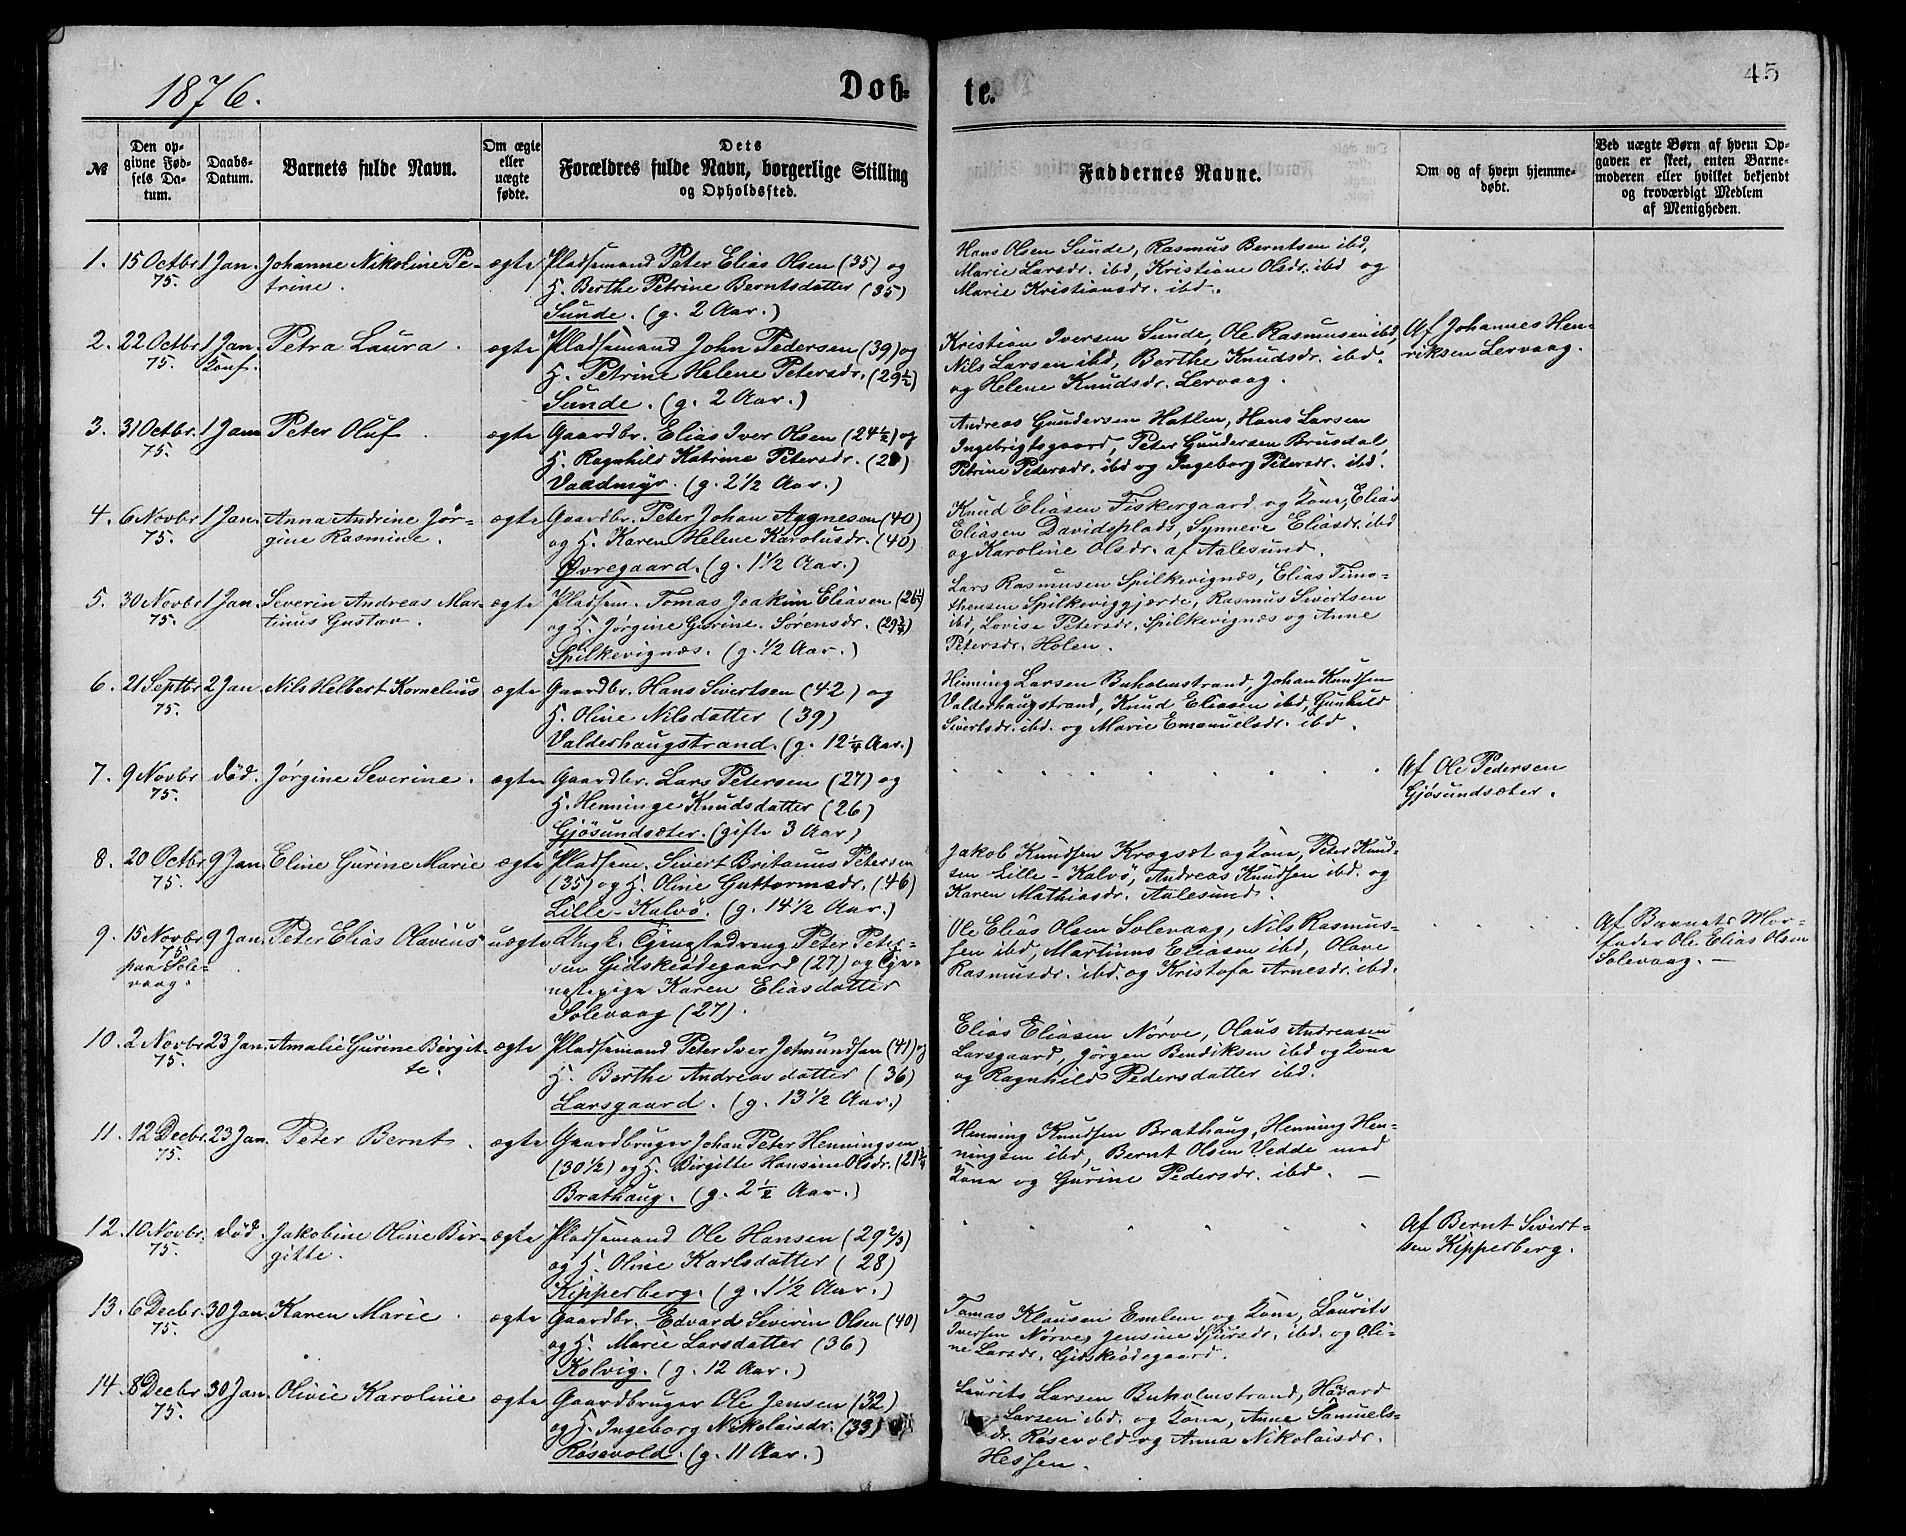 1876.
Døb-
te.
45
№
Den op-
givne Fød-
sels Da-
tum.
Daabs-
Datum.
Barnets fulde Navn.
Om ægte
eller
uægte
fødte.
Dets
Forældres fulde Navn, borgerlige Stilling
og Opholdssted.
Faddernes Navne.
Om og af hvem hjemme-
døbt.
Ved uægte Børn af hvem Op-
gaven er skeet, enten Barne-
moderen eller hvilket bekjendt
og troværdigt Medlem
af Menigheden.
1. 15 Octbr 1 Jan. Johanne Nikoline Pe- ægte Pladsemand Peter Elias Olsen (35) og
75. trine. H. Berthe Petrine Berntsdatter (35)
Sunde. (g. 2 Aar.)
Hans Olsen Sunde, Rasmus Berntsen ibd,
Marie Larsdr. ibd, Kristiane Olsdr. ibd og
Marie Kristiansdr. ibd.
2. 22 Octbr 1 Jan. Petra Laura. ægte Pladsemand John Pedersen (39) og
75. Konf. H. Petrine Helene Petersdr. (29½)
Sunde. (g. 2 Aar.)
Kristian Iversen Sunde, Ole Rasmusen ibd,
Nils Larsen ibd, Berthe Knudsdr. ibd.
og Helene Knudsdr. Lervaag.
Af Johannes Hen-
riksen Lervaag.
3. 31 Octbr. 1 Jan Peter Oluf. ægte Gaardbr. Elias Iver Olsen (24½) og
75. H. Ragnhild Katrine Petersdr.
Vaadmyr. (g. 2 1/2 Aar.)
Andreas Gundersen Hatlen, Hans Larsen
Ingebrigtsgaard, Peter Gundersen Brusdal,
Petrine Petersdr. ibd og Ingeborg Petersdr. ibd.
4. 6 Novbr 1 Jan. Anna Andrine Jør- ægte Gaardbr. Peter Johan Aggnesen (40)
75. gine Rasmine. og H. Karen Helene Karolusdr. (40)
Øvregaard. (g. 1 1/2 Aar.)
Knud Eliasen Fiskergaard og Kone, Elias
Eliasen Davidsplads, Synneve Eliasdr. ibd
og Karoline Olsdr. af Aalesund.
5. 30 Novbr 1 Jan. Severin Andreas Mar- ægte Pladsem. Tomas Joakim Eliasen
75. tinus Gustav. og H. Jørgine Gurine Sørensdr. (29¾)
Spilkevignæs. (g. 1/2 Aar.)
Lars Rasmusen Spilkevignæs, Elias Timo-
thensen Spilkeviggjærde, Rasmus Sivertsen
ibd, Lovise Petersdr. Spilkevignæs og Anne
Petersdr. Holen.
6. 21 Septbr 2 Jan. Nils Helbert Kornelius ægte Gaardbr. Hans Sivertsen (42) og
75. H. Oline Nilsdatter (39)
Valderhaugstrand. (g. 12¼ Aar.)
Henning Larsen Buholmstrand, Johan Knudsen
Valderhaugstrand, Knud Eliasen ibd, Gunhild
Sivertsdr. ibd. og Marie Emanuelsdr. ibd.
7. 9 Novbr død. Jørgine Severine. ægte Gaardbr. Lars Petersen (27) og
75. H. Henninge Knudsdatter (26)
Gjøsundsæter. (gifte 3 Aar)
Af Ole Pedersen
Gjøsundsæter.
8. 20 Octbr 9 Jan. Eline Gurine Marie ægte Pladsem. Sivert Britanus Petersen
75. (35) og H. Oline Guttormsdr. (46)
Lille-Kalvø. (g. 14 1/2 Aar.)
Jakob Knudsen Krogsæt og Kone, Peter Knud-
sen Lille-Kalvø, Andreas Knudsen ibd. og
Karen Mathiasdr. Aalesund.
9. 15 Novbr 9 Jan. Peter Elias Olavius uægte Ungk. Tjenestedreng Peter Peter-
75. sen Gidskeødegaard (27) og Tje-
paa Sole- nestepige Karen Eliasdatter
vaag. Solevaag (27).
Ole Elias Olsen Solevaag, Nils Rasmus-
sen ibd, Martinus Eliasen ibd, Olave
Rasmusdr. ibd. og Kristofa Arnesdr. ibd.
Af Barnets Mor-
fader Ole Elias Olsen
Solevaag. —
10. 2 Novbr 23 Jan. Amalie Gurine Birgit- ægte Pladsemand Peter Iver Jetmundsen (41) og
75. te. H. Berthe Andreasdatter (36)
Larsgaard. (g. 13 1/2 Aar.)
Elias Eliasen Nørve, Olaus Andreasen
Larsgaard, Jørgen Bendiksen ibd og Kone
og Ragnhild Pedersdatter ibd.
11. 12 Decbr. 23 Jan. Peter Bernt. ægte Gaardbruger Johan Peter Henningsen
75. (30 1/2) og H. Birgitte Hansine Olsdr.
Brathaug. (g. 2½ Aar.)
Henning Knudsen Brathaug, Henning Hen-
ningsen ibd, Bernt Olsen Vedde med
Kone og Gurine Pedersdr. ibd. —
12. 10 Novbr. død. Jakobine Oline Bir- ægte Pladsemand Ole Hansen (29 2/3)
75. gitte. og H. Oline Karlsdatter (28)
Kipperberg. (g. 1 1/2 Aar.)
Af Bernt Sivert-
sen Kipperberg.
13. 6 Decbr. 30 Jan Karen Marie. ægte Gaardbr. Edvard Severin Olsen (40)
75. og H. Marie Larsdatter (36)
Kolvig. (g. 12 Aar.)
Tomas Klausen Emlem og Kone, Laurits
Iversen Nørve, Jensine Sjursdr. ibd. og Oli-
ne Larsdr. Gidskeødegaard.
14. 8 Decbr. 30 Jan. Olivie Karoline ægte Gaardbruger Ole Jensen (32)
75. og H. Ingeborg Nikolaisdr. (33)
Røsevold. (g. 11 Aar.)
Laurits Larsen Buholmstrand, Havard
Larsen ibd. og Kone, Anne Samuels-
dr. Røsevold og Anna Nikolaisdr.
Hessen.